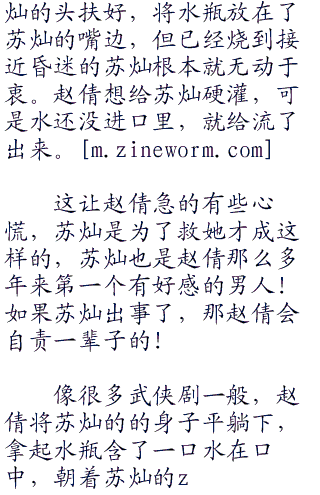 灿的头扶好，将水瓶放在了
苏灿的嘴边，但已经烧到接
近昏迷的苏灿根本就无动于
衷。赵倩想给苏灿硬灌，可
是水还没进口里，就给流了
出来。[m.zineworm.com]
这让赵倩急的有些心
慌，苏灿是为了救她才成这
样的，苏灿也是赵倩那么多
年来第一个有好感的男人！
如果苏灿出事了，那赵倩会
自责一辈子的！
像很多武侠剧一般，赵
倩将苏灿的的身子平躺下，
拿起水瓶含了一口水在口
中，朝着苏灿的z